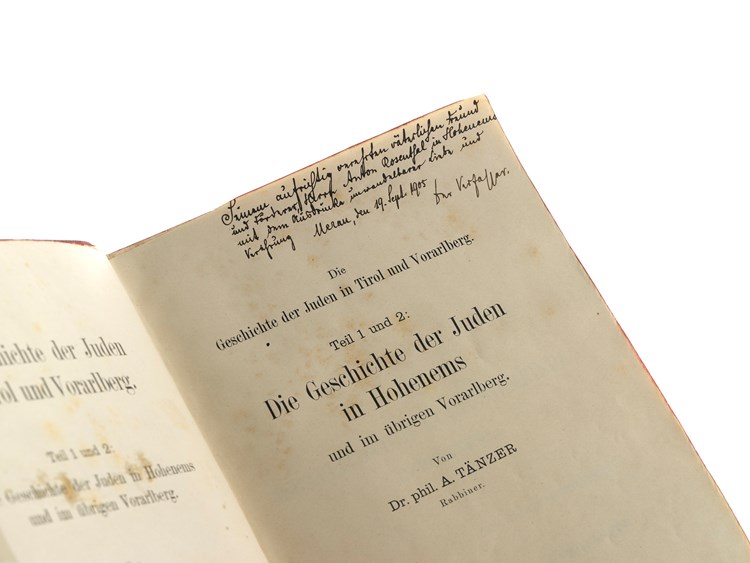 Seinem aufrichtig verehrten väterlichen Freund
und Förderer, Herrn Anton Rosenthal in Hohenems
mit dem Ausdrucke unwandelbarer Liebe und
Verehrung Meran, den 19. Sept. 1905 Der Verfasser.
Die
Geschichte der Juden in Tirol und Vorarlberg.
Teil 1 und 2:
Die Geschichte der Juden
in Hohenems
und im übrigen Vorarlberg.
Von
Dr. phil. A. TÄNZER
Rabbiner.
chichte der Juden
rol und Vorarlberg.
Teil 1 und 2:
Geschichte der Juden in Hohenems
und im übrigen Vorarlberg.